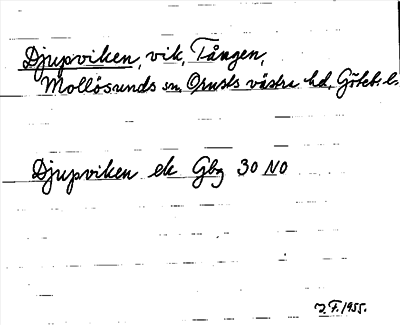 Djupviken, vik, Tången,
Mollösunds sn, Orusts västra hd, Göteb. l.
Djupviken ek Gbg 30 NO
J. F. 1955.